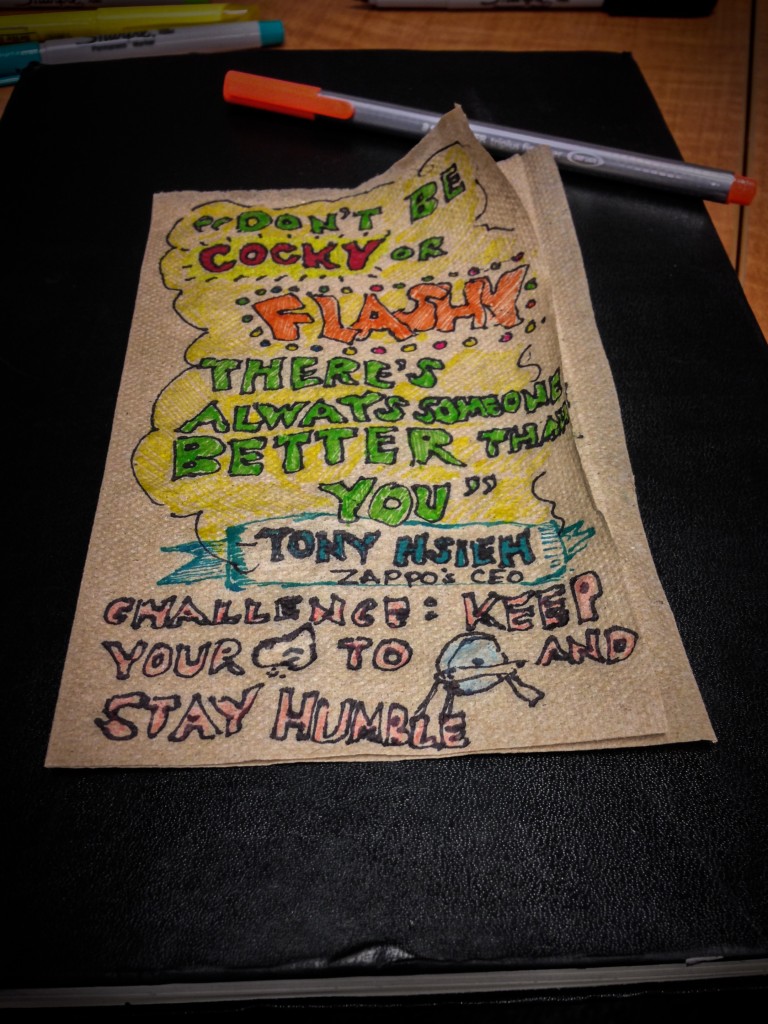 “DON'T BE
COCKY OR
FLASHY
THERE'S
ALWAYS SOMEONE
BETTER THAN
YOU”
TONY HSIEH
ZAPPO'S CEO
CHALLENGE: KEEP
YOUR TO AND
STAY HUMBLE